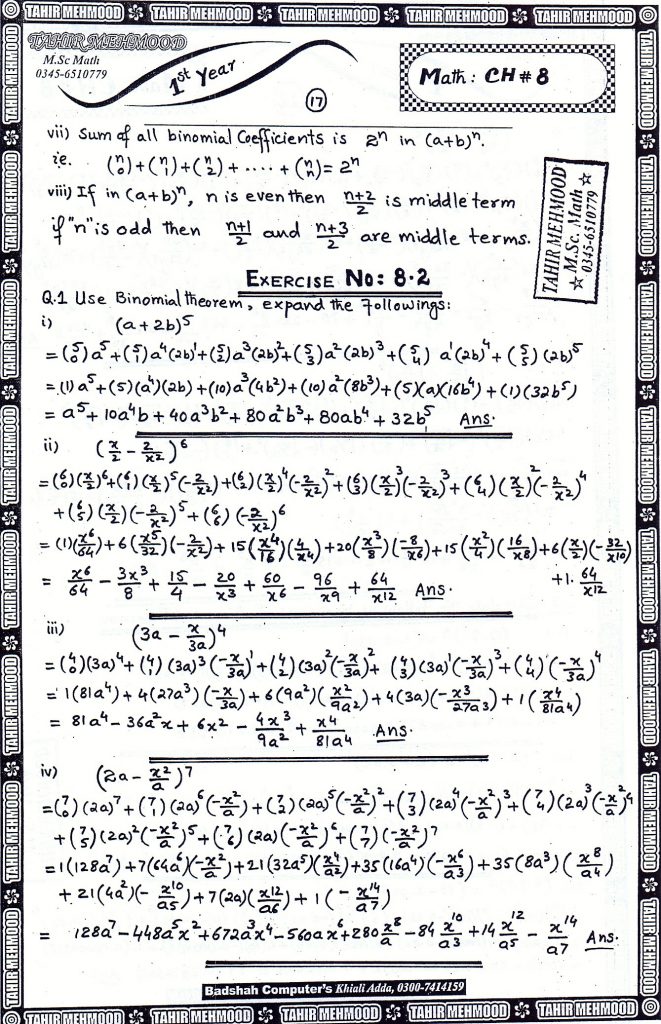 TAHIR MEHMOOD TAHIR MEHMOOD TAHIR MEHMOOD TAHIR MEHMOOD TAHIR MEHMOOD
TAHIR MEHMOOD
M.Sc Math
0345-6510779
1st Year
17
Math : CH # 8
vii) Sum of all binomial Coefficients is 2ⁿ in (a+b)ⁿ.
i.e. (n 0)+(n 1)+(n 2)+ .... +(n n) = 2ⁿ
viii) If in (a+b)ⁿ, n is even then (n+2)/2 is middle term
if "n" is odd then (n+1)/2 and (n+3)/2 are middle terms.
TAHIR MEHMOOD
☆ M.Sc. Math ☆
☆ 0345-6510779
EXERCISE NO: 8.2
Q.1 Use Binomial theorem, expand the followings:
i) (a+2b)⁵
= (5 0)a⁵+(5 1)a⁴(2b)¹+(5 2)a³(2b)²+(5 3)a²(2b)³+(5 4)a¹(2b)⁴+(5 5)(2b)⁵
= (1)a⁵+(5)(a⁴)(2b)+(10)a³(4b²)+(10)a²(8b³)+(5)(a)(16b⁴)+(1)(32b⁵)
= a⁵+10a⁴b+40a³b²+80a²b³+80ab⁴+32b⁵ Ans.
ii) (x/2 - 2/x²)⁶
= (6 0)(x/2)⁶+(6 1)(x/2)⁵(-2/x²)+(6 2)(x/2)⁴(-2/x²)²+(6 3)(x/2)³(-2/x²)³+(6 4)(x/2)²(-2/x²)⁴
+(6 5)(x/2)(-2/x²)⁵+(6 6)(-2/x²)⁶
= (1)(x⁶/64)+6(x⁵/32)(-2/x²)+15(x⁴/16)(4/x⁴)+20(x³/8)(-8/x⁶)+15(x²/4)(16/x⁸)+6(x/2)(-32/x¹⁰)
+1.64/x¹²
= x⁶/64 - 3x³/8 + 15/4 - 20/x³ + 60/x⁶ - 96/x⁹ + 64/x¹² Ans.
iii) (3a - x/3a)⁴
= (4 0)(3a)⁴+(4 1)(3a)³(-x/3a)¹+(4 2)(3a)²(-x/3a)²+(4 3)(3a)¹(-x/3a)³+(4 4)(-x/3a)⁴
= 1(81a⁴)+4(27a³)(-x/3a)+6(9a²)(x²/9a²)+4(3a)(-x³/27a³)+1(x⁴/81a⁴)
= 81a⁴-36a²x+6x²-4x³/9a²+x⁴/81a⁴ Ans.
iv) (2a - x²/a)⁷
= (7 0)(2a)⁷+(7 1)(2a)⁶(-x²/a)+(7 2)(2a)⁵(-x²/a)²+(7 3)(2a)⁴(-x²/a)³+(7 4)(2a)³(-x²/a)⁴
+(7 5)(2a)²(-x²/a)⁵+(7 6)(2a)(-x²/a)⁶+(7 7)(-x²/a)⁷
= 1(128a⁷)+7(64a⁶)(-x²/a)+21(32a⁵)(x⁴/a²)+35(16a⁴)(-x⁶/a³)+35(8a³)(x⁸/a⁴)
+21(4a²)(-x¹⁰/a⁵)+7(2a)(x¹²/a⁶)+1(-x¹⁴/a⁷)
= 128a⁷-448a⁵x²+672a³x⁴-560ax⁶+280x⁸/a-84x¹⁰/a³+14x¹²/a⁵-x¹⁴/a⁷ Ans.
Badshah Computer's Khiali Adda, 0300-7414159
TAHIR MEHMOOD TAHIR MEHMOOD TAHIR MEHMOOD TAHIR MEHMOOD TAHIR MEHMOOD